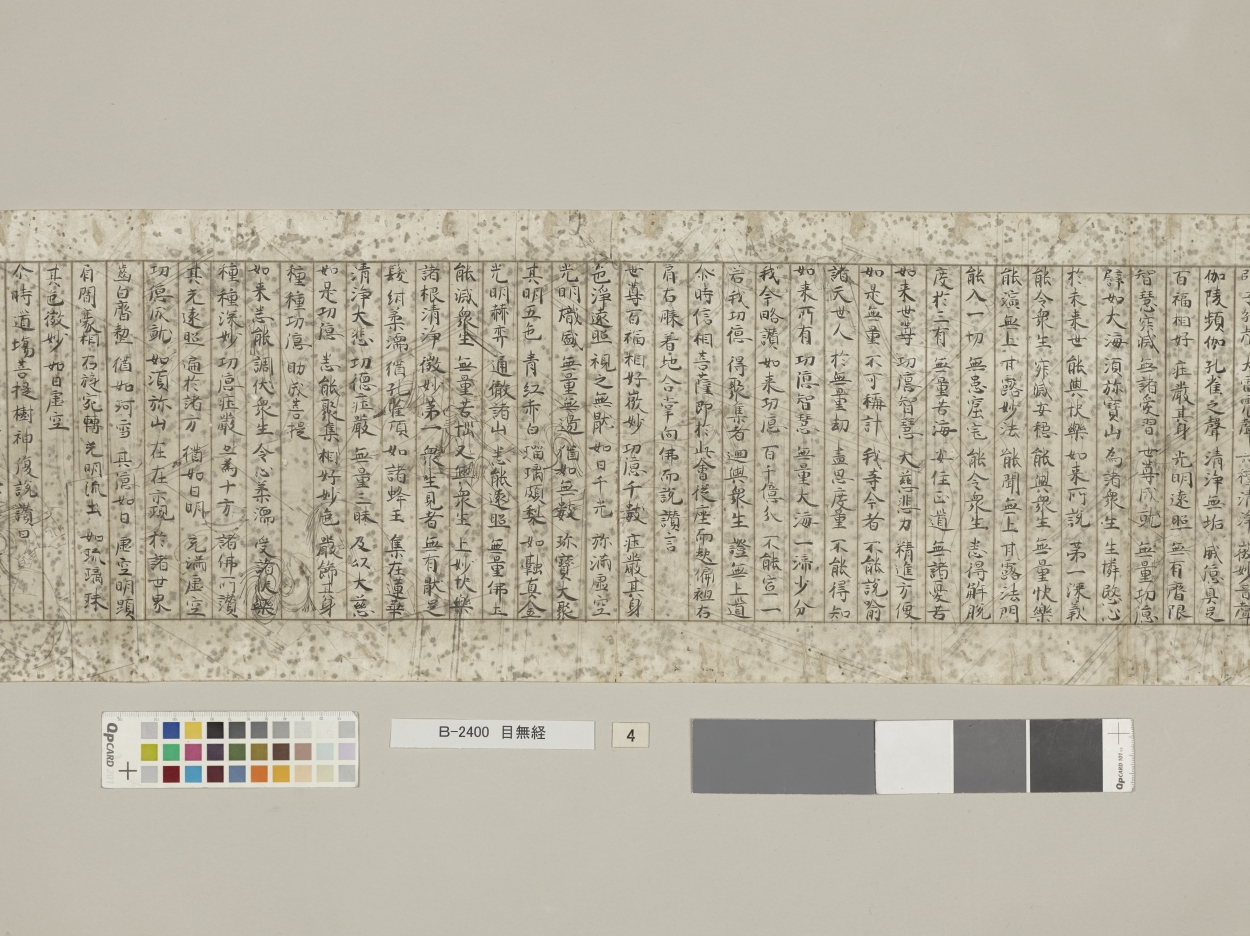 大雷震聲 六種清淨 微妙音聲
伽陵頻伽 孔雀之聲 清淨無垢 威德具足
百福相好 莊嚴其身 光明遠照 無有齊限
智慧寂滅 無諸愛習 世尊成就 無量功德
譬如大海 須弥寶山 為諸衆生 生憐愍心
於未來世 能與快樂 如來所說 第一深義
能令衆生 寂滅安穩 能與衆生 無量快樂
能演無上 甘露妙法 能開無上 甘露法門
能入一切 無患窟宅 能令衆生 悉得解脫
度於三有 無量苦海 安住正道 無諸憂苦
如來世尊 功德智慧 大慈悲力 精進方便
如是無量 不可稱計 我等今者 不能說喻
諸天世人 於無量劫 盡思度量 不能得知
如來所有 功德智慧 無量大海 一渧少分
我今略讚 如來功德 百千億分 不能宣一
若我功德 得聚集者 迴與衆生 證無上道
尒時信相菩薩即於此會從座而起偏袒右
肩右膝著地合掌向佛而說讚言
世尊百福 相好微妙 功德千數 莊嚴其身
色淨遠照 視之無猒 如日千光 弥滿虛空
光明熾盛 無量無邊 猶如無數 珎寶大聚
其明五色 青紅赤白 瑠璃頗梨 如融真金
光明赫奕 通徹諸山 悉能遠照 無量佛土
能滅衆生 無量苦惱 又與衆生 上妙快樂
諸根清淨 微妙第一 衆生見者 無有猒足
髮紺柔濡 猶孔雀項 如諸蜂王 集在蓮華
清淨大悲 功德莊嚴 無量三昧 及以大慈
如是功德 悉能聚集 相好妙色 嚴飾其身
種種功德 助成菩提
如來悉能 調伏衆生 令心柔濡 受諸快樂
種種深妙 功德莊嚴 亦為十方 諸佛所讚
其光遠照 遍於諸方 猶如日明 充滿虛空
功德成就 如須弥山 在在示現 於諸世界
齒白齊密 猶如珂雪 其德如日 處空明顯
眉間毫相 右旋宛轉 光明流出 如琉璃珠
其色微妙 如日處空
尒時道場菩提樹神復說讚曰
B-2400 目無経
4
QPCARD
QPCARD 101